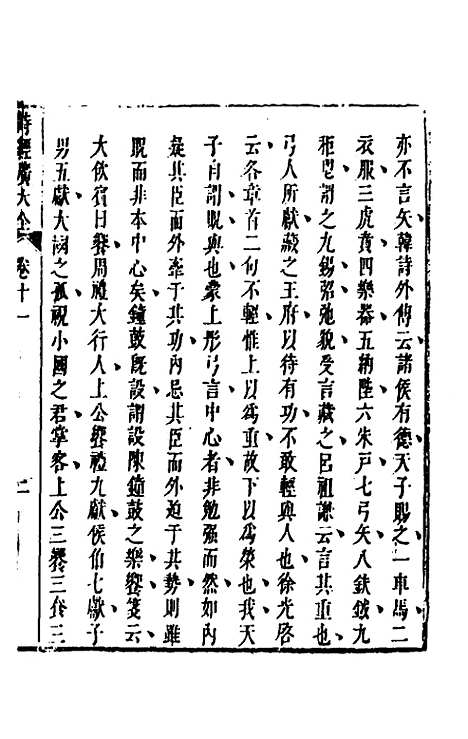 亦不言矢韓詩外傳云諸侯有德天子賜之一車馬二
衣服三虎賁四樂器五納陛六朱戸七弓矢八鈇鉞九
秬鬯謂之九錫弨弛貌受言藏之呂祖謙云言其重也
弓人所獻藏之王府以待有功不敢輕與人也徐光啓
云各章首二句不輕惟上以爲重故下以爲榮也我天
子自謂貺與也蒙上彤弓言中心者非勉强而然如內
疑其臣而外牽于其功內忌其臣而外迫于其勢則雖
貺而非本中心矣鐘鼓旣設謂設陳鐘鼓之樂饗箋云
大飲賓曰饗周禮大行人上公饗禮九獻侯伯七獻子
男五獻大國之孤視小國之君掌客上公三饗三食三
詩經廣大全 卷十一 二